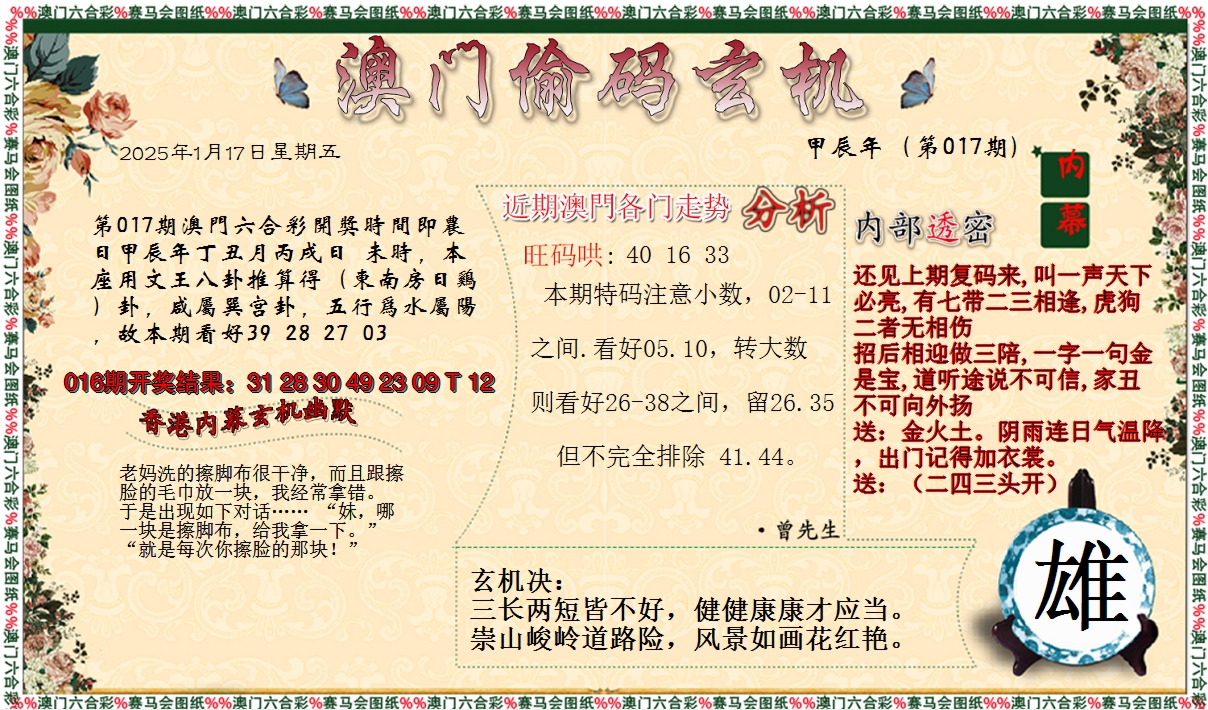 %%澳门六合彩%赛马会图纸%%澳门六合彩%赛马会图纸%%澳门六合彩%赛马会图纸%%澳门六合彩%赛马会图纸%%澳门六合彩%赛马会图纸%%澳门六合彩%赛马会图纸%%
澳门偷码玄机
2025年1月17日星期五
甲辰年（第017期）
内幕
第017期澳門六合彩開獎時間即農
日甲辰年丁丑月丙戌日 未時，本
座用文王八卦推算得（東南房日鷄
）卦，咸屬巽宫卦，五行爲水屬陽
，故本期看好39 28 27 03
016期开奖结果：31 28 30 49 23 09 T 12
香港内幕玄机幽默
老妈洗的擦脚布很干净，而且跟擦
脸的毛巾放一块，我经常拿错。
于是出现如下对话…… “妹，哪
一块是擦脚布，给我拿一下。”
“就是每次你擦脸的那块！”
近期澳門各门走势 分析
旺码哄: 40 16 33
本期特码注意小数，02-11
之间.看好05.10，转大数
则看好26-38之间，留26.35
但不完全排除 41.44。
·曾先生
内部透密
还见上期复码来,叫一声天下
必亮,有七带二三相逢,虎狗
二者无相伤
招后相迎做三陪,一字一句金
是宝,道听途说不可信,家丑
不可向外扬
送：金火土。阴雨连日气温降
，出门记得加衣裳。
送：（二四三头开）
玄机决：
三长两短皆不好，健健康康才应当。
崇山峻岭道路险，风景如画花红艳。
雄
%%澳门六合彩%赛马会图纸%%澳门六合彩%赛马会图纸%%澳门六合彩%赛马会图纸%%澳门六合彩%赛马会图纸%%澳门六合彩%赛马会图纸%%澳门六合彩%赛马会图纸%%